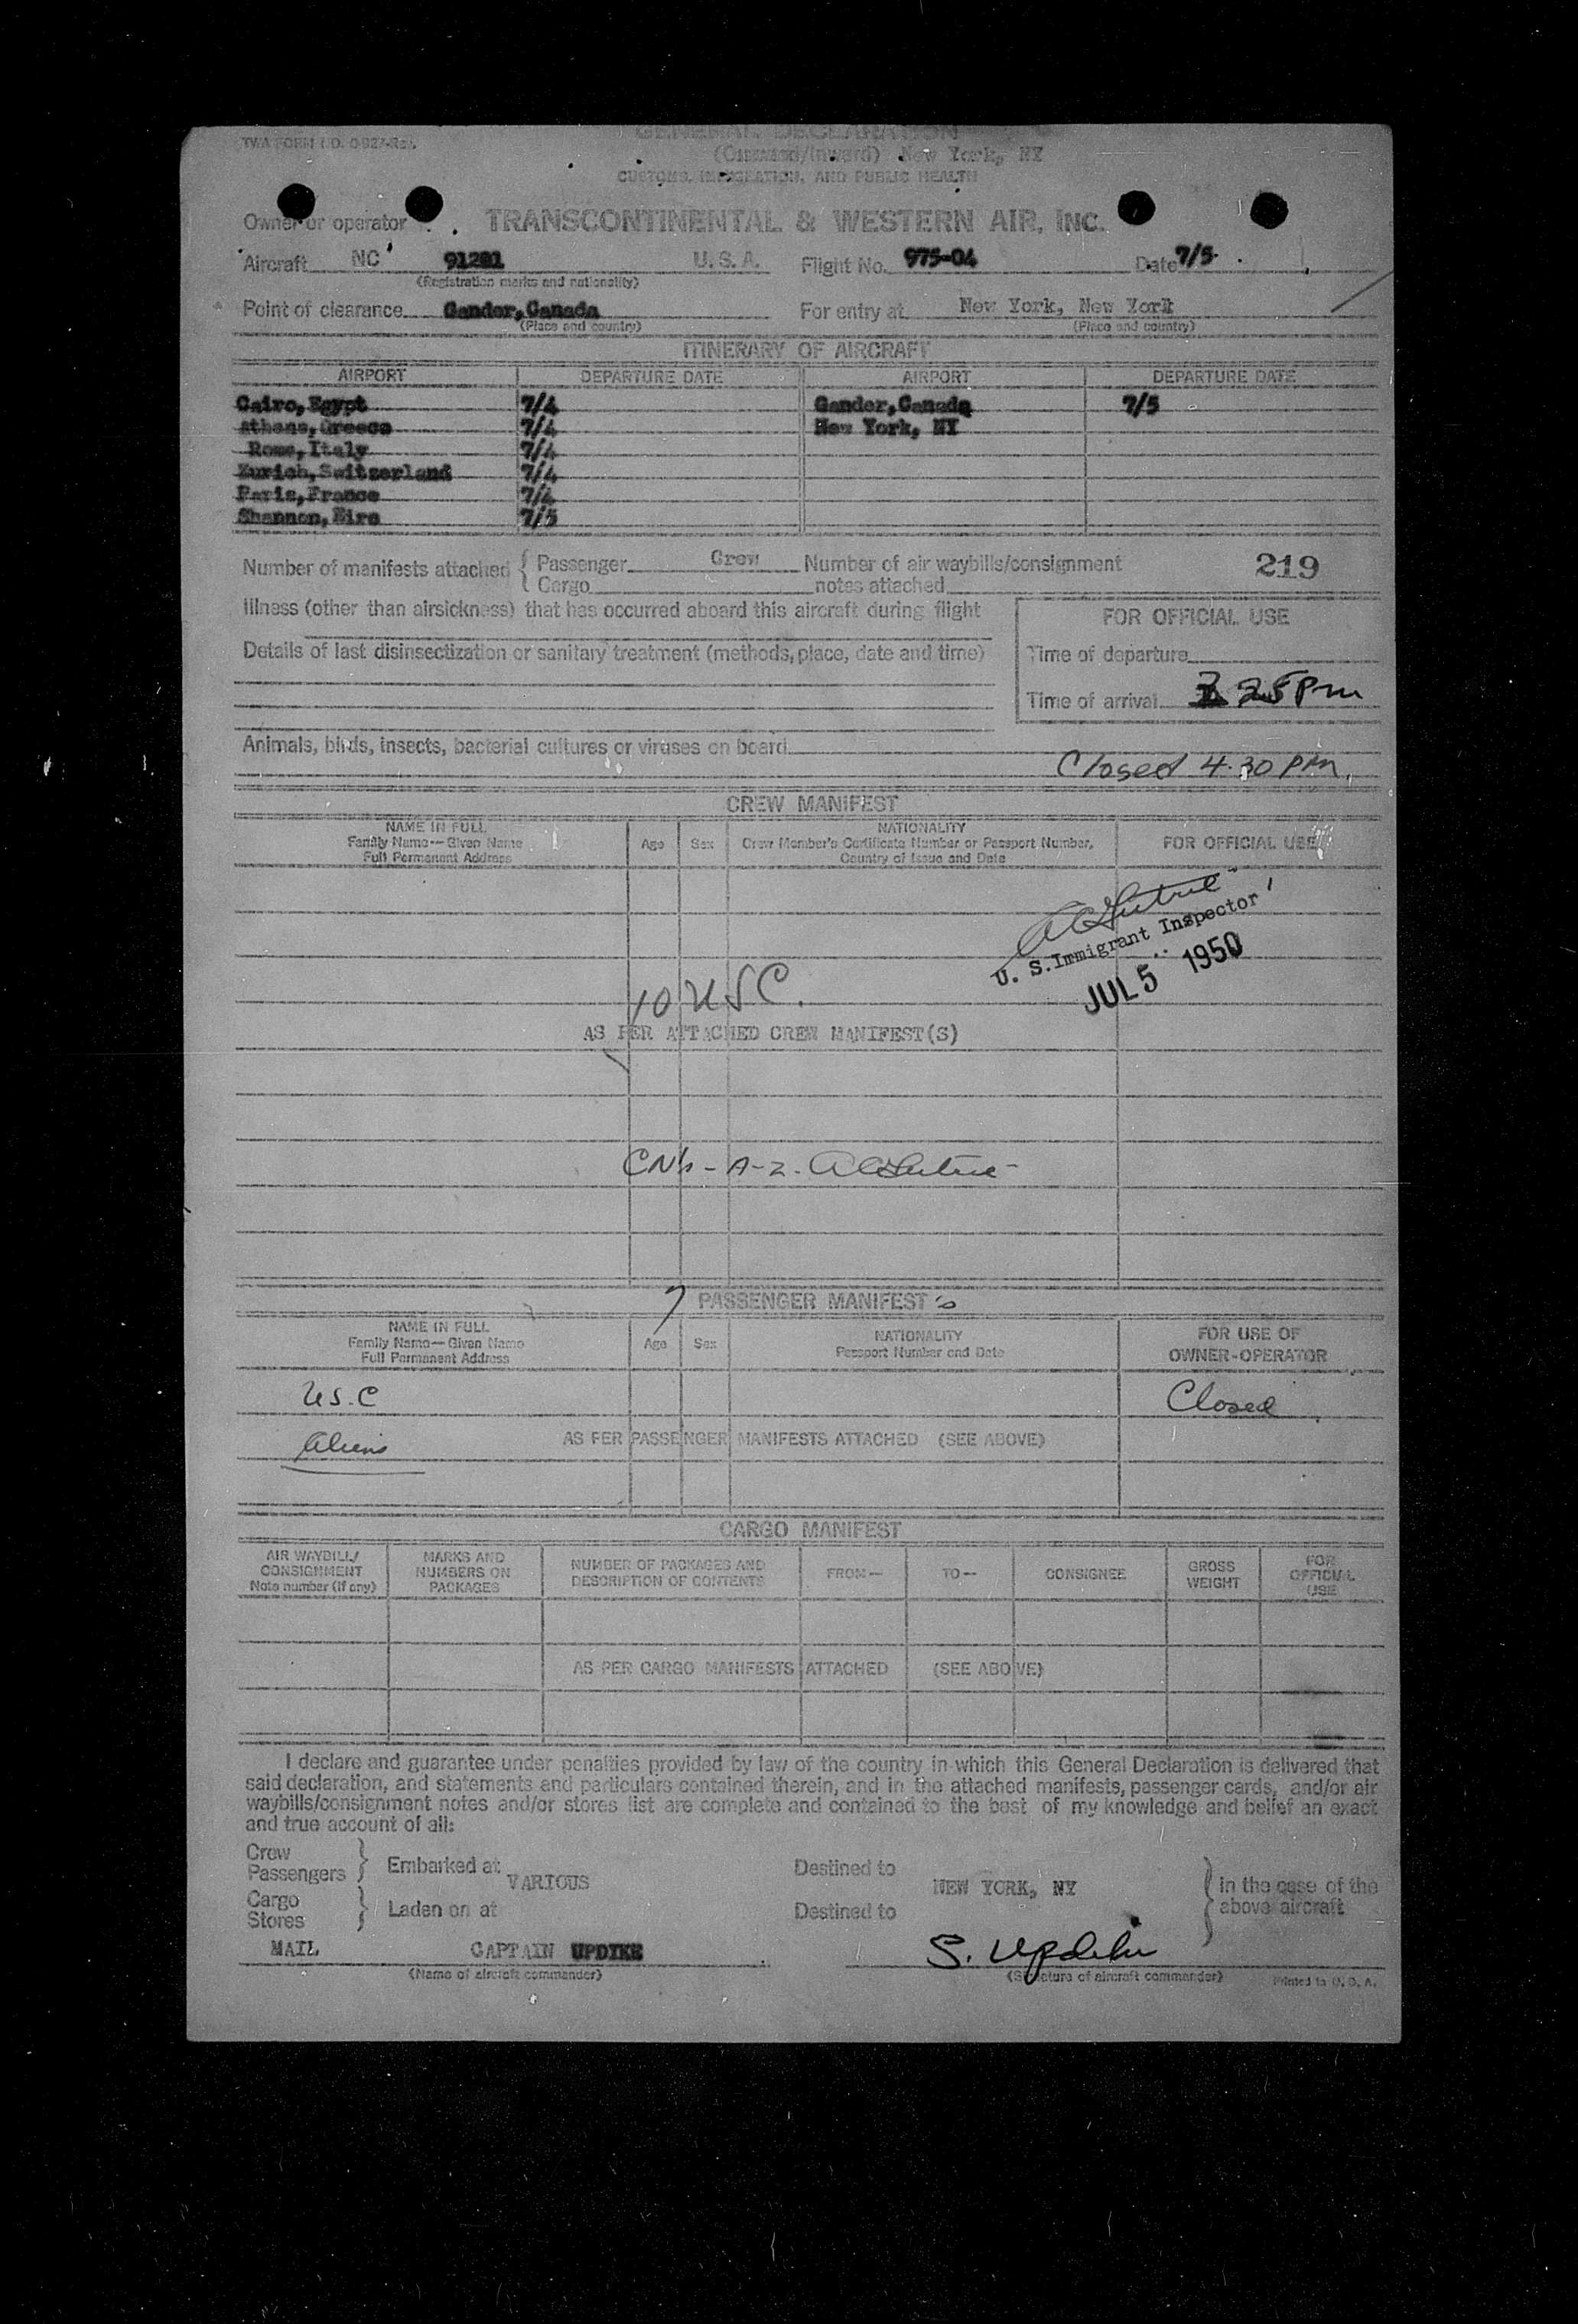 GENERAL DECLARATION
TWA FORM NO. 0-927-Rev.
(Outward/Inward) New York, NY
CUSTOMS, IMMIGRATION, AND PUBLIC HEALTH
Owner or operator TRANSCONTINENTAL & WESTERN AIR, INC.
Aircraft NC 91201 U. S. A. Flight No. 975-04 Date 7/5
(Registration marks and nationality)
Point of clearance Gander,Canada For entry at New York, New York
(Place and country) (Place and country)
ITINERARY OF AIRCRAFT
AIRPORT DEPARTURE DATE AIRPORT DEPARTURE DATE
Cairo,Egypt 7/4 Gander,Canada 7/5
Athens,Greece 7/4 New York, NY
Rome,Italy 7/4
Zurich,Switzerland 7/4
Paris,France 7/4
Shannon,Eire 7/5
Number of manifests attached { Passenger Crew Number of air waybills/consignment 219
Cargo notes attached
Illness (other than airsickness) that has occurred aboard this aircraft during flight
FOR OFFICIAL USE
Details of last disinsectization or sanitary treatment (methods, place, date and time)
Time of departure
Time of arrival 25 PM
Animals, birds, insects, bacterial cultures or viruses on board
Closed 4.30 PM.
CREW MANIFEST
NAME IN FULL
Family Name—Given Name
Full Permanent Address
Age Sex
NATIONALITY
Crew Member's Certificate Number or Passport Number,
Country of Issue and Date
FOR OFFICIAL USE
U. S. Immigrant Inspector
JUL 5 1950
10 USC.
AS PER ATTACHED CREW MANIFEST(S)
A-Z.
7 PASSENGER MANIFEST's
NAME IN FULL
Family Name—Given Name
Full Permanent Address
Age Sex
NATIONALITY
Passport Number and Date
FOR USE OF
OWNER-OPERATOR
U.S.C Closed
Aliens AS PER PASSENGER MANIFESTS ATTACHED (SEE ABOVE)
CARGO MANIFEST
AIR WAYBILL/
CONSIGNMENT
Note number (if any)
MARKS AND
NUMBERS ON
PACKAGES
NUMBER OF PACKAGES AND
DESCRIPTION OF CONTENTS
FROM—
TO—
CONSIGNEE
GROSS
WEIGHT
FOR
OFFICIAL
USE
AS PER CARGO MANIFESTS ATTACHED (SEE ABOVE)
I declare and guarantee under penalties provided by law of the country in which this General Declaration is delivered that
said declaration, and statements and particulars contained therein, and in the attached manifests, passenger cards, and/or air
waybills/consignment notes and/or stores list are complete and contained to the best of my knowledge and belief an exact
and true account of all:
Crew
Passengers } Embarked at VARIOUS Destined to NEW YORK, NY
Cargo
Stores } Laden on at Destined to
} in the case of the
above aircraft
MAIL CAPTAIN UPDIKE S. Updike
(Name of aircraft commander) (Signature of aircraft commander) Printed in U. S. A.